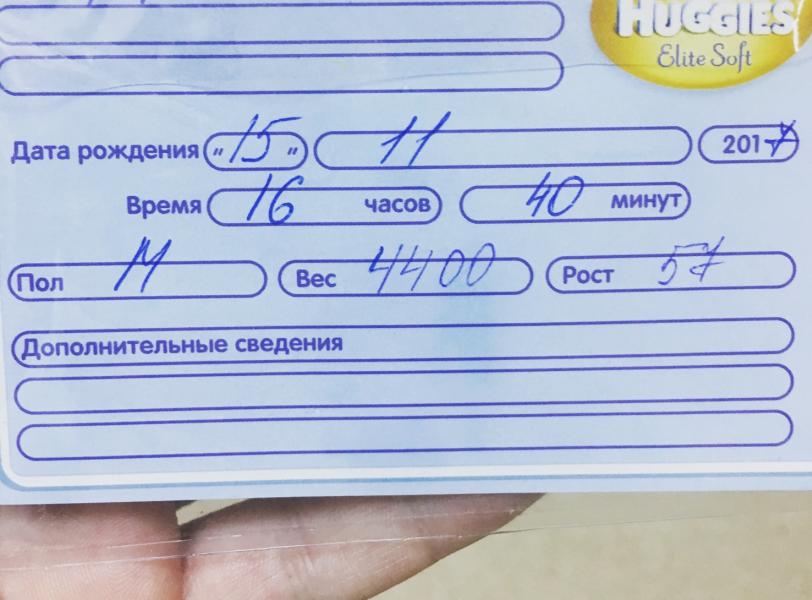 HUGGIES
Elite Soft
Дата рождения „ 15 " 11 2017
Время 16 часов 40 минут
Пол М Вес 4400 Рост 57
Дополнительные сведения